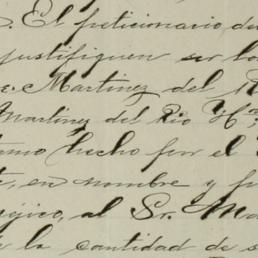 . El peticionario, de
justifiquen ser lo
e. Martinez del R
Martinez del Rio Hº
hecho por el
, en nombre y
jico, al Sr. Ma
la cantidad de s